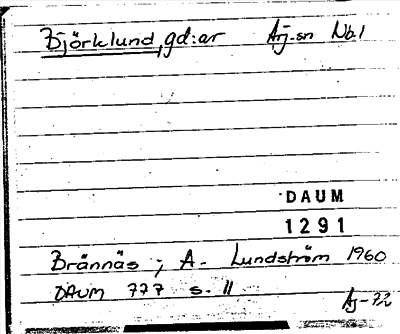 Björklund, gd:ar Arj-sn Nb.1
DAUM
1291
Brännäs; A. Lundström 1960
DAUM 777 s. 11
Aj-72